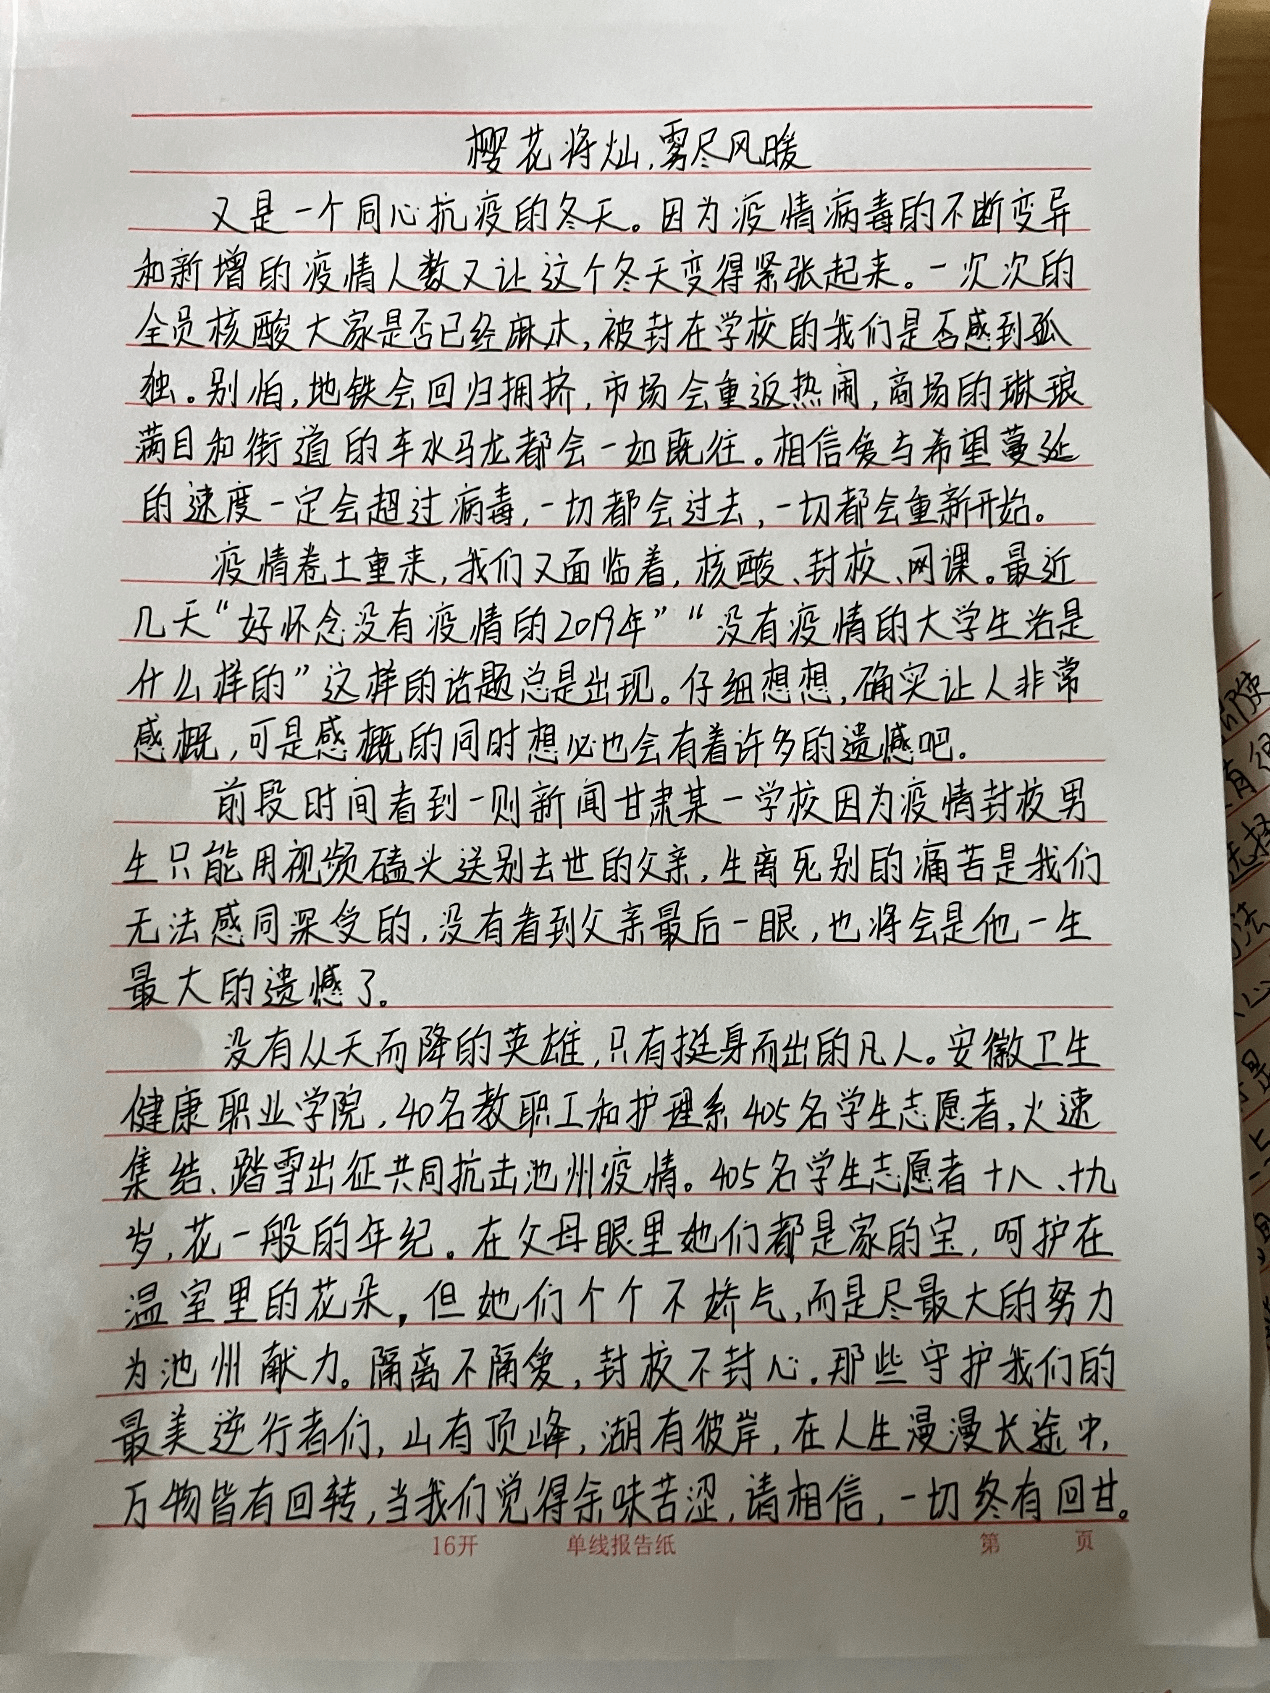 樱花将灿,雾尽风暖
又是一个同心抗疫的冬天。因为疫情病毒的不断变异
和新增的疫情人数又让这个冬天变得紧张起来。一次次的
全员核酸大家是否已经麻木,被封在学校的我们是否感到孤
独。别怕,地铁会回归拥挤,市场会重返热闹,商场的琳琅
满目和街道的车水马龙都会一如既往。相信爱与希望蔓延
的速度一定会超过病毒,一切都会过去,一切都会重新开始。
疫情卷土重来,我们又面临着,核酸、封校、网课。最近
几天“好怀念没有疫情的2019年”“没有疫情的大学生活是
什么样的”这样的话题总是出现。仔细想想,确实让人非常
感概,可是感概的同时想必也会有着许多的遗憾吧.
前段时间看到一则新闻甘肃某一学校因为疫情封校男
生只能用视频磕头送别去世的父亲,生离死别的痛苦是我们
无法感同深受的,没有看到父亲最后一眼,也将会是他一生
最大的遗憾了.
没有从天而降的英雄,只有挺身而出的凡人。安徽卫生
健康职业学院,40名教职工和护理系405名学生志愿者,火速
集结、踏雪出征共同抗击池州疫情。405名学生志愿者十八、十九
岁,花一般的年纪。在父母眼里她们都是家的宝,呵护在
温室里的花朵,但她们个个不娇气,而是尽最大的努力
为池州献力。隔离不隔爱,封校不封心.那些守护我们的
最美逆行者们,山有顶峰,湖有彼岸,在人生漫漫长途中,
万物皆有回转,当我们觉得余味苦涩,请相信,一切终有回甘。
16开 单线报告纸 第 页